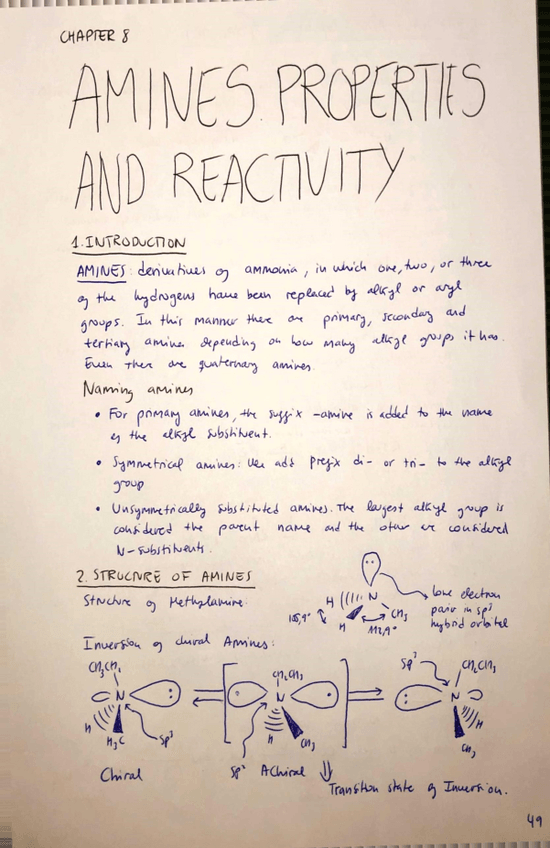 CHAPTER 8
AMINES. PROPERTIES
AND REACTIVITY
1. INTRODUCTION
AMINES: derivatives of ammonia, in which one, two, or three
of the hydrogens have been replaced by alkyl or aryl
groups. In this manner there are primary, secondary and
tertiary amines depending on how many alkyl groups it has.
Even there are quaternary amines.
Naming amines
• For primary amines, the suffix -amine is added to the name
of the alkyl substituent.
• Symmetrical amines: We add prefix di- or tri- to the alkyl
group
• Unsymmetrically substituted amines. The largest alkyl group is
considered the parent name and the other are considered
N-substituents.
2. STRUCTURE OF AMINES
Structure of Methylamine:
H N CH3
H
105,9° 112,9°
lone electron
pair in sp3
hybrid orbital
Inversion of chiral Amines:
CH3CH2 N H H3C sp3
CH2CH3 N H CH3 sp2
sp3 CH2CH3 N H CH3
Chiral
Achiral
Transition state of Inversion.
49